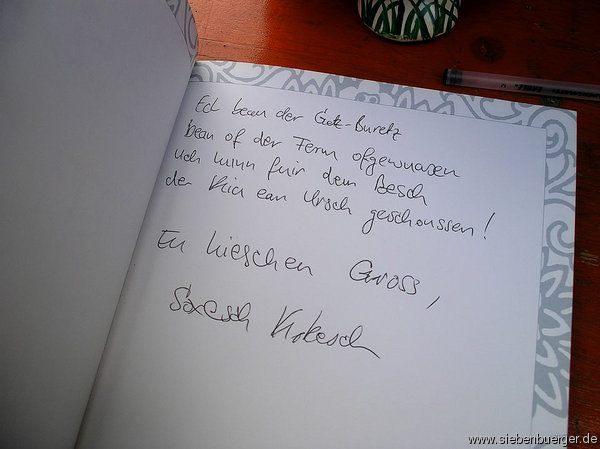 Ech bean der Gote-Buretz
bean of der Ferm ofgewuaxen
uch hunn fuir dem Besch
der Kia ean Ursch geschoussen!
En hieschen Gross,
Saresch Kokesch
www.siebenbuerger.de